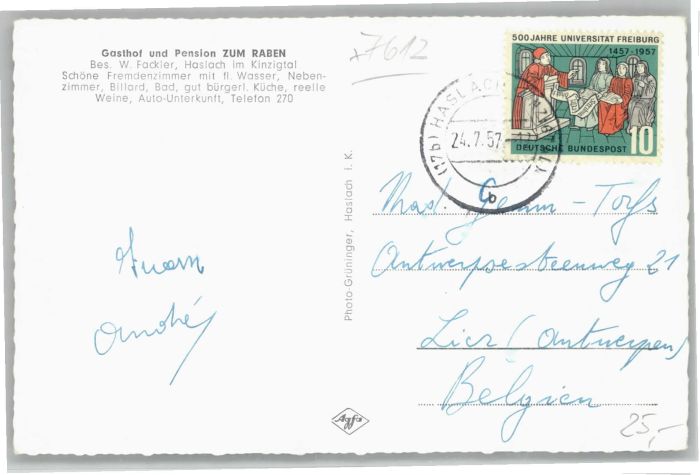 Gasthof und Pension ZUM RABEN
Bes. W. Fackler, Haslach im Kinzigtal
Schöne Fremdenzimmer mit fl. Wasser, Neben-
zimmer, Billard, Bad, gut bürgerl. Küche, reelle
Weine, Auto-Unterkunft, Telefon 270
7612
500 JAHRE UNIVERSITÄT FREIBURG
1457-1957
DEUTSCHE BUNDESPOST
10
(17b) HASLACH
24.7.57
b
Photo-Grüninger, Haslach i. K.
Mad. - Torfs
Antwerpsesteenweg 21
Lier (Antwerpen)
Belgien
André
Agfa
25,-